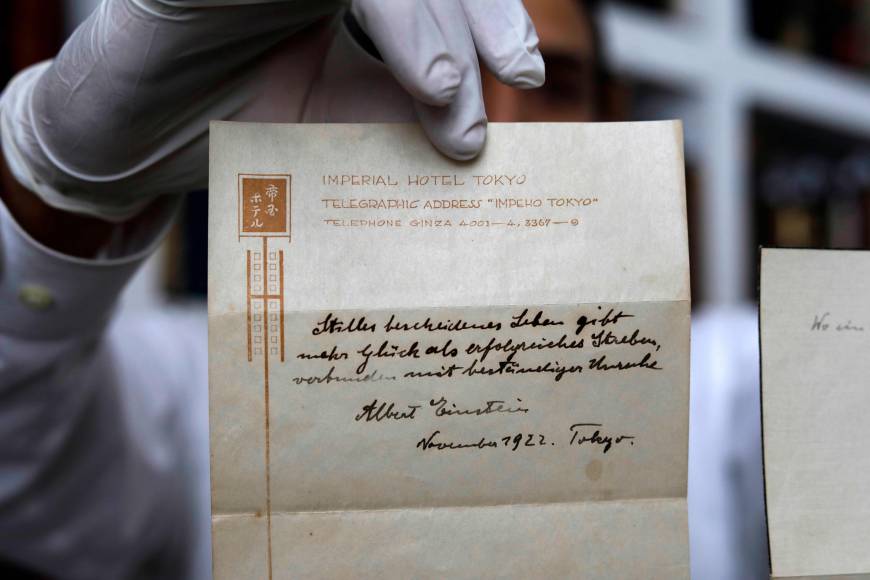 帝国
ホテル
IMPERIAL HOTEL TOKYO
TELEGRAPHIC ADDRESS "IMPEHO TOKYO"
TELEPHONE GINZA 4001—4, 3367—8
Stilles bescheidenes Leben gibt
mehr Glück als erfolgreiches Streben,
verbunden mit beständiger Unruhe
Albert Einstein
November 1922. Tokyo.
Wo ein